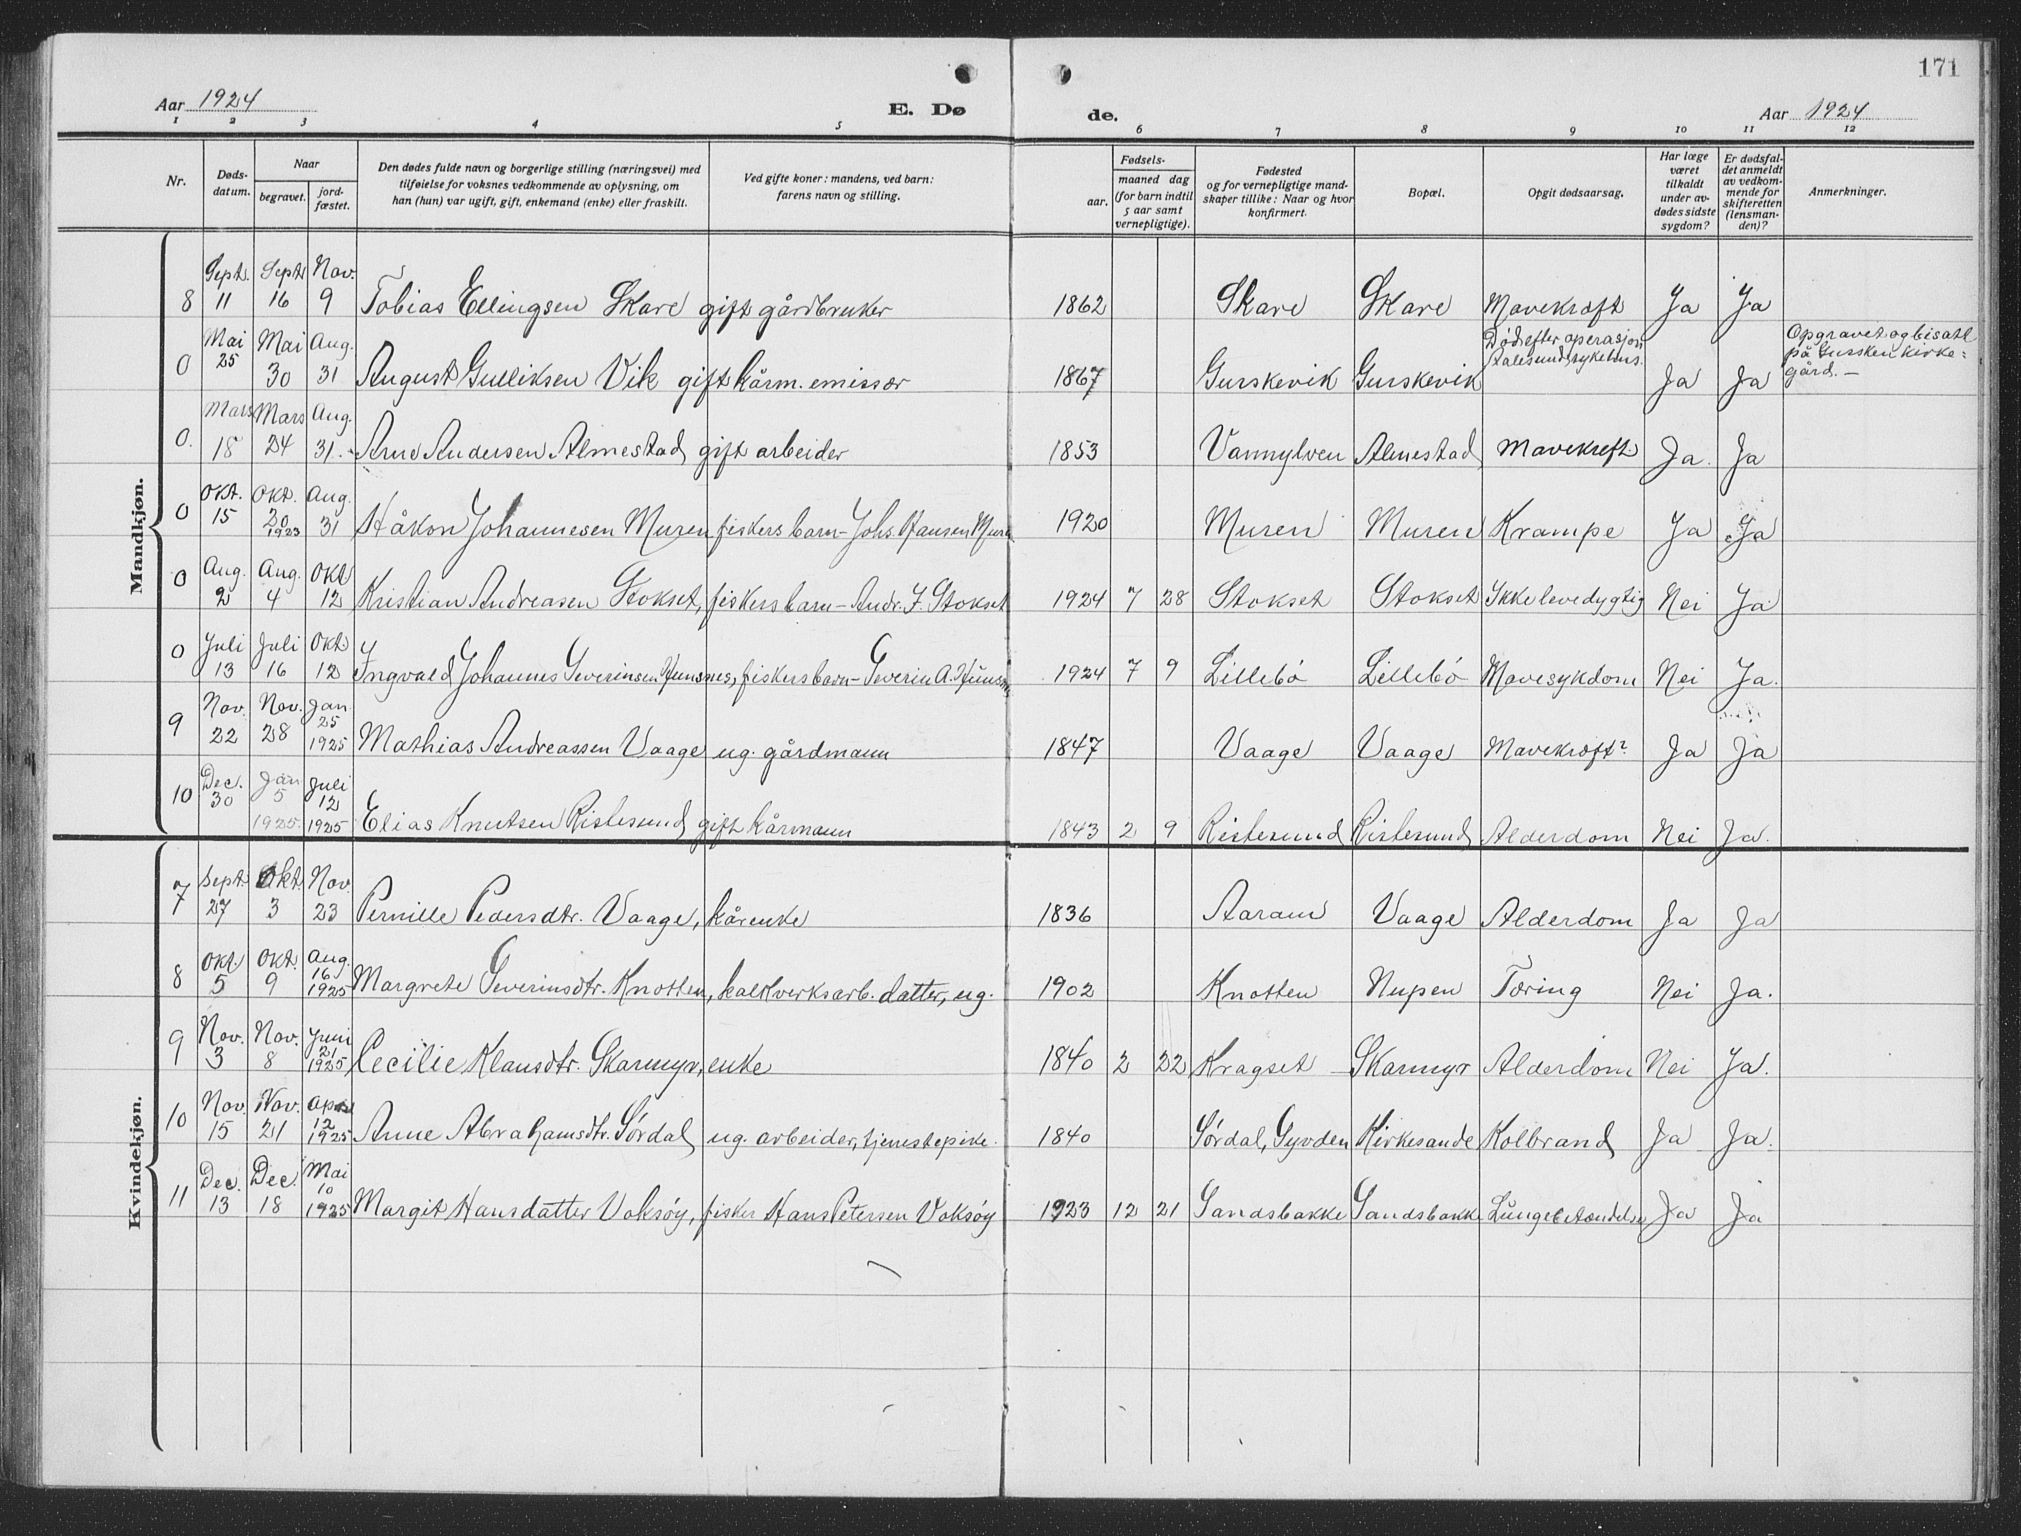 171
Aar 1924
E. Dø
de.
Aar 1924
1 2 3 4 5 6 7 8 9 10 11 12
Nr.
Dødsdatum.
Naar
begravet.
jordfæstet.
Den dødes fulde navn og borgerlige stilling (næringsvei) med
tilføielse for voksnes vedkommende av oplysning, om
han (hun) var ugift, gift, enkemand (enke) eller fraskilt.
Ved gifte koner: mandens, ved barn:
farens navn og stilling.
Fødsels-
aar.
maaned dag
(for barn indtil
5 aar samt
vernepligtige).
Fødested
og for vernepligtige mand-
skaper tillike: Naar og hvor
konfirmert.
Bopæl.
Opgit dødsaarsag.
Har læge
været
tilkaldt
under av-
dødes sidste
sygdom?
Er dødsfal-
det anmeldt
av vedkom-
mende for
skifteretten
(lensman-
den)?
Anmerkninger.
Mandkjøn.
8 Sept. 11 Sept 16 Nov. 9 Tobias Ellingsen Skare gift gårdbruker 1862 Skare Skare Mavekræft Ja Ja
0 Mai 25 Mai 30 Aug. 31 August Gulliksen Vik gift kårm. emissær 1867 Gurskevik Gurskevik Død efter operasjon Aalesund sykehus. Ja Ja Opgravet og bisatt på Gursken kirke= gård. —
0. Mars 18 Mars 24 Aug. 31. Arne Andersen Almestad gift arbeider 1853 Vannylven Almestad Mavekreft Ja. Ja
0 Okt. 15 Okt. 20 1923 Aug. 31 Håkon Johannesen Muren fiskers barn - Johs. Hansen Muren 1920 Muren Muren Krampe Ja Ja
0 Aug. 2 Aug. 4 Okt 12 Kristian Andreasen Stokset, fiskers barn - Andr. J. Stokset 1924 7 28 Stokset Stokset Ikke levedygtig Nei Ja
0 Juli 13 Juli 16 Okt 12 Ingvald Johannes Severinsen Hunsnes, fiskers barn - Severin A. 1924 7 9 Lillebö Lillebö Mavesykdom Nei Ja.
9 Nov. 22 Nov. 28 Jan 25 1925 Mathias Andreassen Vaage ug. gårdmann 1847 Vaage Vaage Mavekræft? Ja Ja
10 Dec. 30 Jan 5 1925. Juli 12 1925 Elias Knutsen Ristesund gift kårmann 1843 2 9 Ristesund Ristesund Alderdom Nei Ja.
Kvindekjøn.
7 Sept. 27 Okt 3 Nov. 23 Pernille Pedersdtr. Vaage, kårenke 1836 Aaram Vaage Alderdom Ja Ja
8 Okt 5 Okt. 9 Aug. 16 1925 Margrete Severinsdtr. Knotten, kalkverksarb. datter, ug. 1902 Knotten Nupen Tæring Nei Ja.
9 Nov. 3 Nov. 8 Juni 21 1925 Cecilie Klausdtr. Skarmyr, enke 1840 2 22 Kragset Skarmyr Alderdom Nei Ja.
10 Nov. 15 Nov. 21 Apr 12 1925 Anne Abrahamsdtr. Sördal ug. arbeider, tjenestepike. 1840 Sördal, Syvden Kirkesande Kolbrand Ja Ja.
11 Dec. 13 Dec. 18 Mai 10 1925 Margit Hansdatter Voksöy, fisker Hans Petersen Voksöy 1923 12 21 Sandsbakke Sandsbakke Lungebetændelse Ja Ja